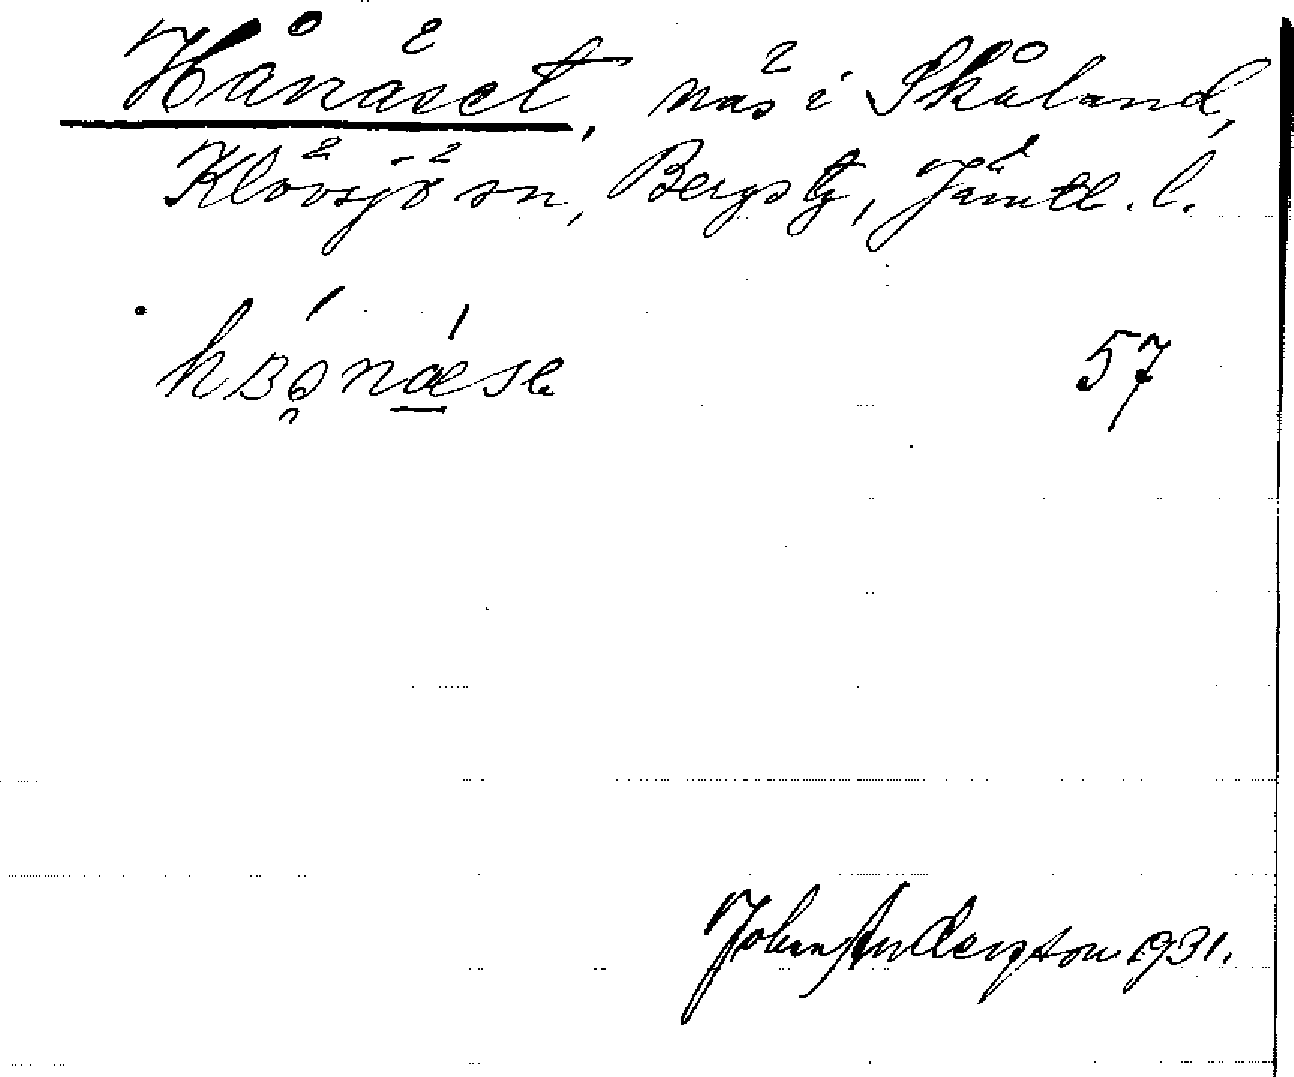 Hånäset, näs i Skåland,
Klövsjö sn, Bergs tg, Jämtl. l.
57
Johan Andersson 1931.